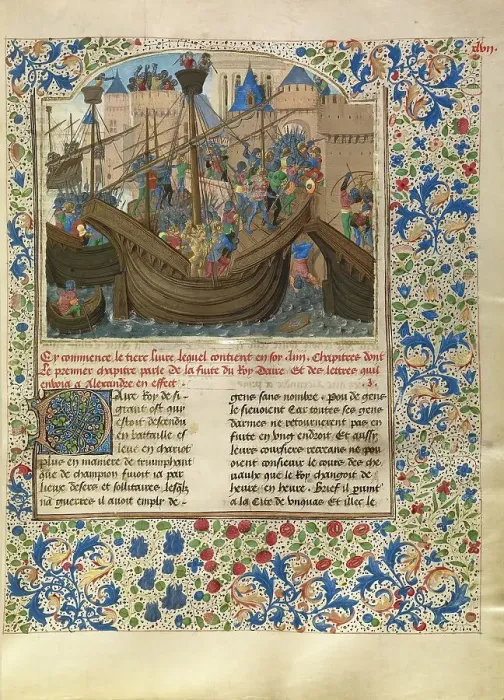 Cy commence le tiers liure lequel contient en soy Chapitres dont
Le premier chapitre parle de la fuite du Roy Daire Et des lettres quil
enuoia a Alexandre en effect
Aire Roy de si
grant ost qui
estoit descendu
en bataille es
leue en chariot
plus en maniere de triumphant
que de champion fuioit ia par
lieux desers et sollitaires lesqlz
na guerres il auoit emply de
gens sans nombre Pou de gens
le sieuoient Car toutes ses gens
darmes ne retournerent pas en
fuite en vng endroit Et aussy
leurs coursiers recreans ne pou
oient consieuir le cours des che
uaulx que le Roy changoit de
heure en heure Brief il vint
a la Cite de vnquas Et illec le